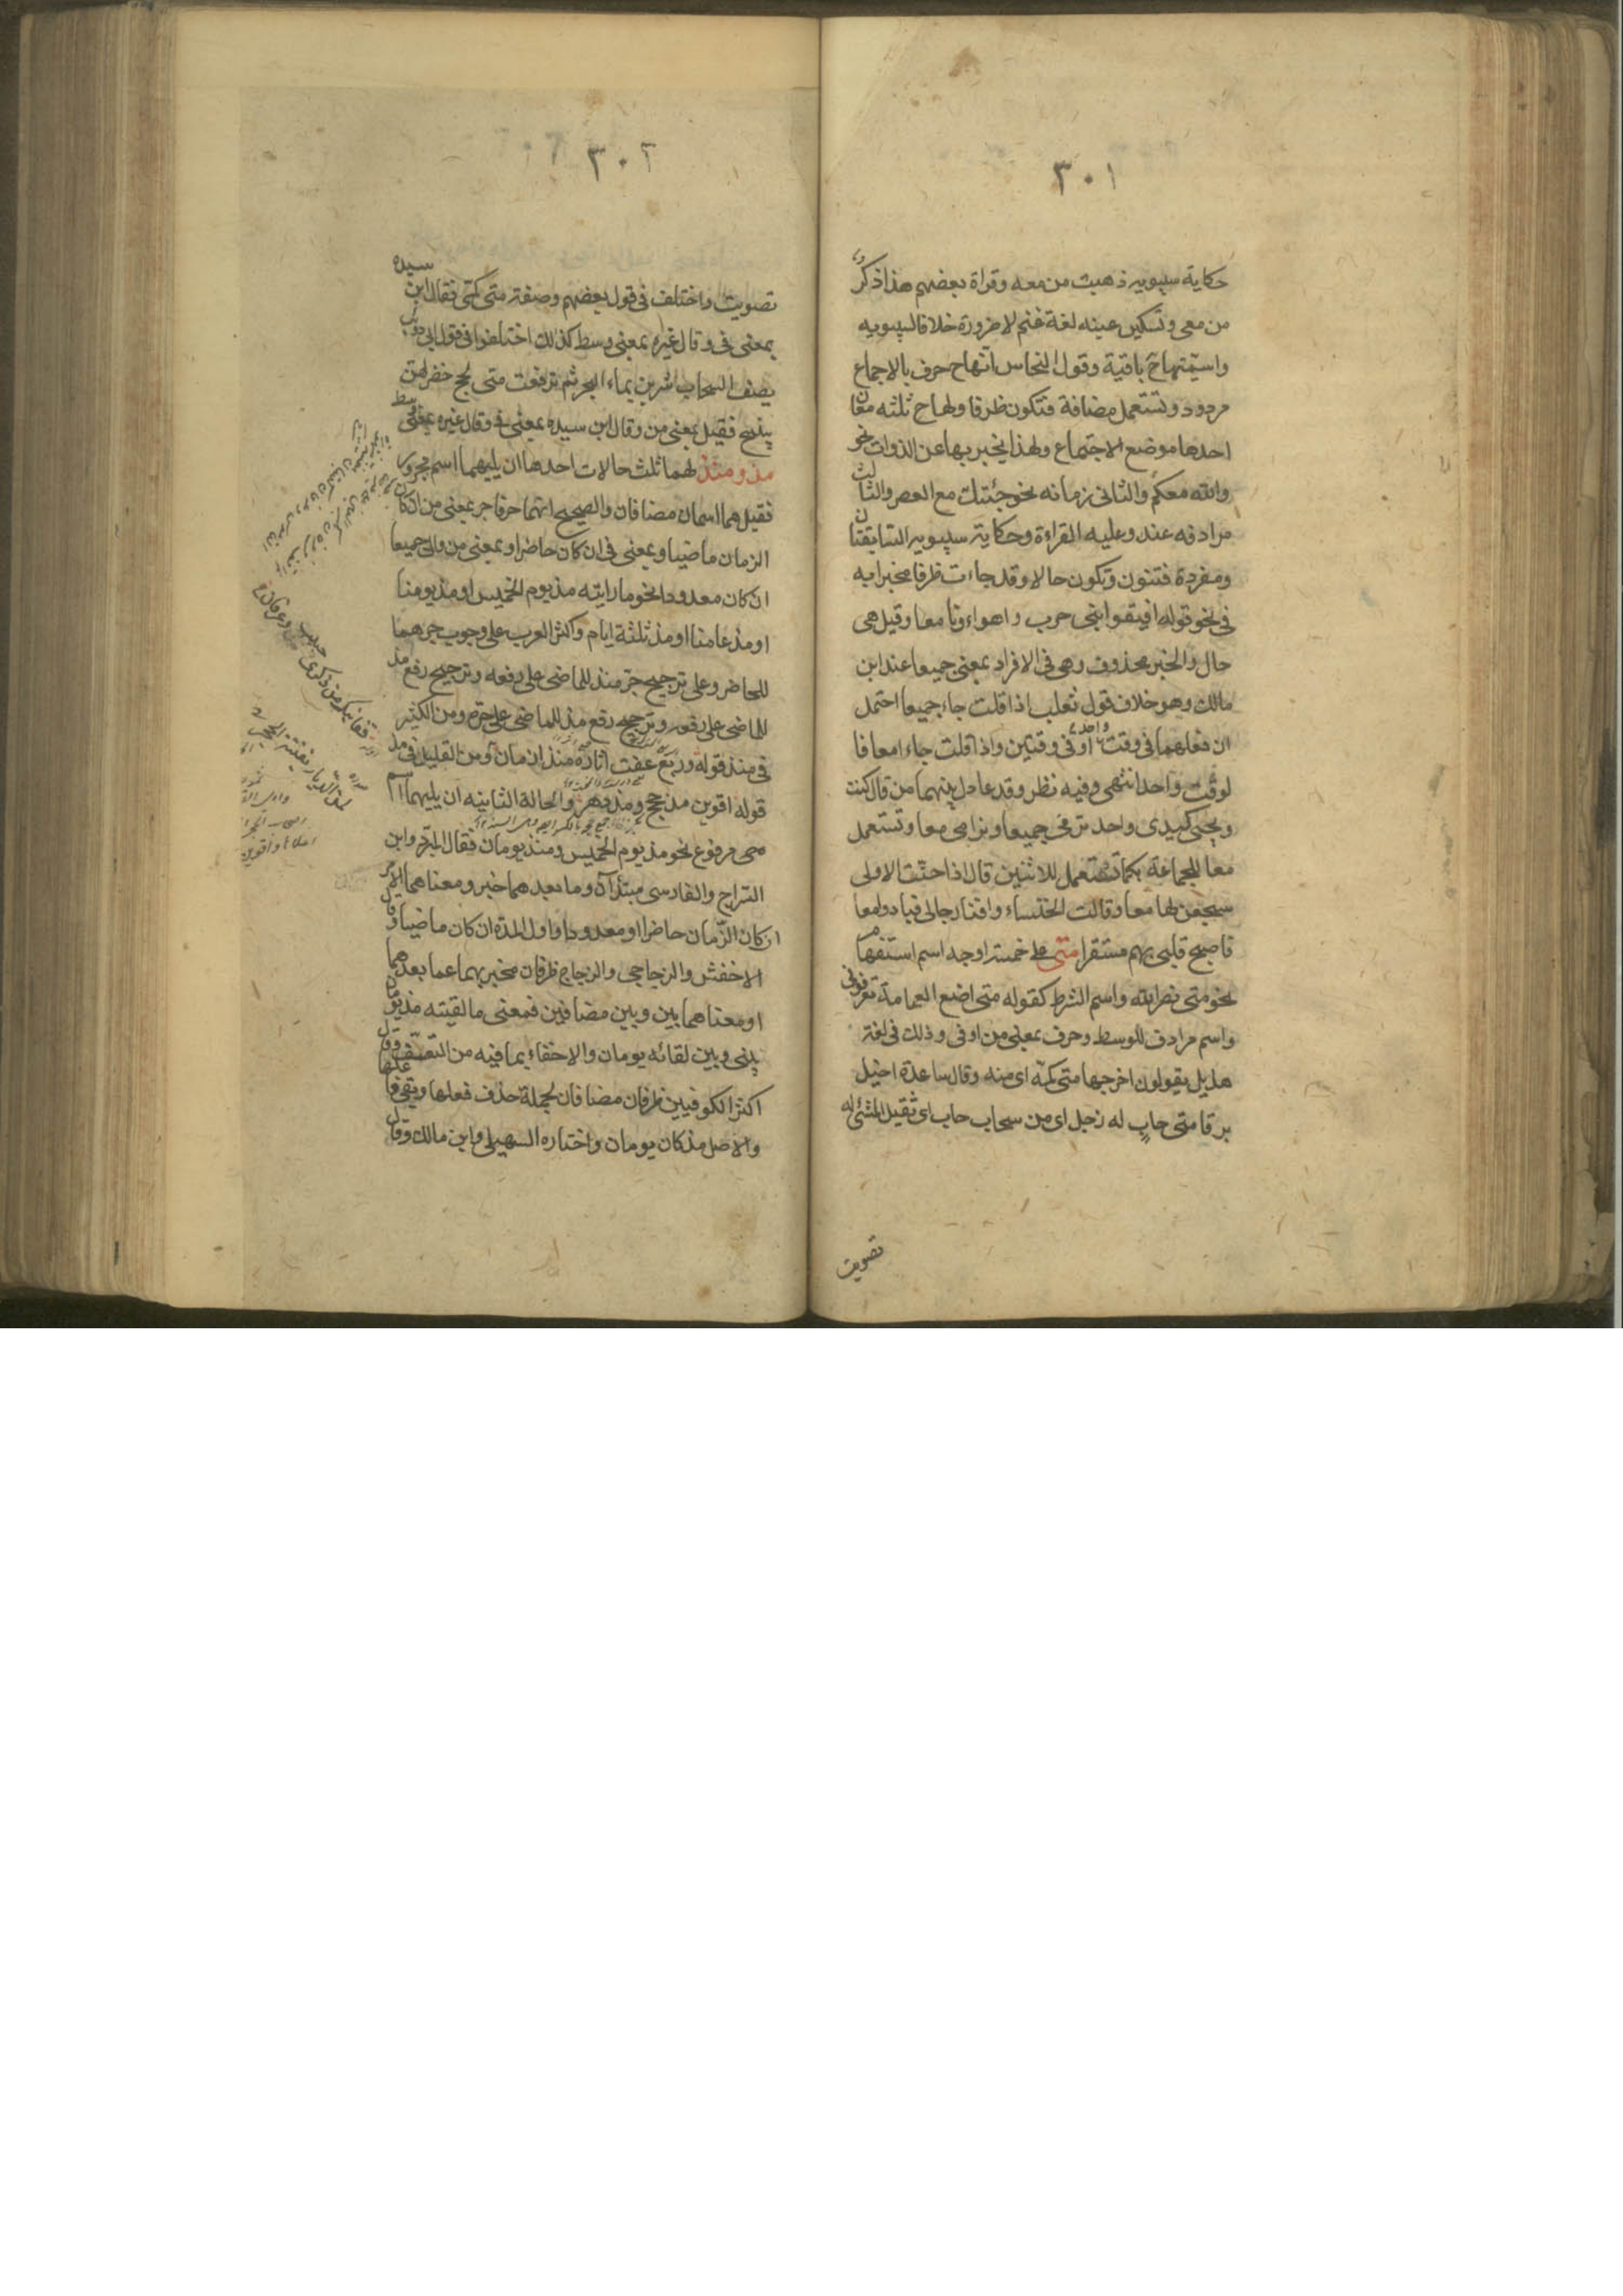 ٣٠١
حكاية سيبويه ذهبت من معه وقراة بعضهم هذا ذكر
من معى وتسكين عينه لغة غنم لا ضرورة خلافا لسيبويه
واسميتها ح باقية وقول النحاس انها ح حرف بالاجماع
مردود وتستعمل مضافة فتكون ظرفا ولها ح ثلثه معان
احدها موضع الاجتماع ولهذا يخبر بها عن الذوات نحو
والله معكم والثانى زمانه نحو جئتك مع العصر والثالث
مرادفه عند وعليه القراءة وحكاية سيبويه السابقتان
ومفردة فتنون وتكون حالا وقد جاءت ظرفا مخبرا به
فى نحو قوله افيقوا بنى حرب واهواءنا معا وقيل هى
حال والخبر محذوف وهى فى الافراد بمعنى جميعا عند ابن
مالك وهو خلاف قول ثعلب اذا قلت جاء جميعا احتمل
ان فعلهما فى وقت واحد او فى وقتين واذا قلت جاءا معا فا
لوقت واحد انتهى وفيه نظر وقد عادل بينهما من قال كنت
ويحيى كيدى واحد نرمى جميعا ونرامى معا وتستعمل
معا للجماعة كما تستعمل للاثنين قال اذا حنت الاولى
سجعن لها معا وقالت الخنساء وافنى رجالى فبادوا معا
فاصبح قلبى بهم مستقرا متى على خمسة اوجه اسم استفهام
نحو متى نصر الله واسم الشرط كقوله متى اضع العمامة تعرفونى
واسم مرادف للوسط وحرف بمعنى من او فى وذلك فى لغة
هذيل يقولون اخرجها متى كمه اى منه وقال ساعدة اخيل
برقا متى حاب له زجل اى من سحاب حاب اى ثقيل المشى له
تصويت
٣٠٢
تصويت واختلف فى قول بعضهم وضعته متى كمى فقال ابن سيده
بمعنى فى وقال غيره بمعنى وسط كذلك اختلفوا فى قول ابى ذويب
يصف السحاب شربن بماء البحر ثم ترفعت متى لجج خضر لهن
نئيج فقيل بمعنى من وقال ابن سيده بمعنى فى وقال غيره بمعنى وسط
مذ ومنذ لهما ثلث حالات احدها ان يليهما اسم مجرور
فقيل هما اسمان مضافان والصحيح انهما حرفا جر بمعنى من ان كان
الزمان ماضيا وبمعنى فى ان كان حاضرا وبمعنى من والى جميعا
ان كان معدودا نحو ما رايته مذ يوم الخميس او مذ يومنا
او مذ عامنا او مذ ثلثة ايام واكثر العرب على وجوب جرهما
للحاضر وعلى ترجيح جر منذ للماضى على رفعه وترجيح رفع مذ
للماضى على رفعه وترجيح رفع مذ للماضى على جره ومن الكثير
فى منذ قوله وربع عفت اثاره منذ ازمان ومن القليل فى مذ
قوله اقوين مذ حجج ومذ دهر والحالة الثانيه ان يليهما اسم
مرفوع نحو مذ يوم الخميس ومنذ يومان فقال المبرد وابن
السراج والفارسى مبتدآن وما بعدهما خبر ومعناهما الامد
ان كان الزمان حاضرا او معدودا واول المدة ان كان ماضيا وقال
الاخفش والزجاجى والزجاج ظرفان مخبر بهما عما بعدهما
او معناهما بين وبين مضافين فمعنى ما لقيته مذ يومان
بينى وبين لقائه يومان والاخفاء بما فيه من التعسف وقال
اكثر الكوفيين ظرفان مضافان لجملة حذف فعلها وبقى فاعلها
والاصل مذ كان يومان واختاره السهيلى وابن مالك وقال
قفا نبك من ذكرى حبيب وعرفان
لمن الديار بقنة الحجر